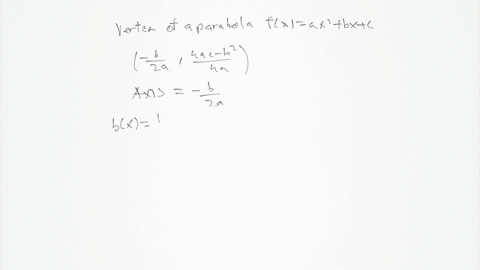 Vertex of a parabola f(x)=ax²+bx+c
(-b/2a, 4ac-b²/4a)
Axis = -b/2a
b(x)=1